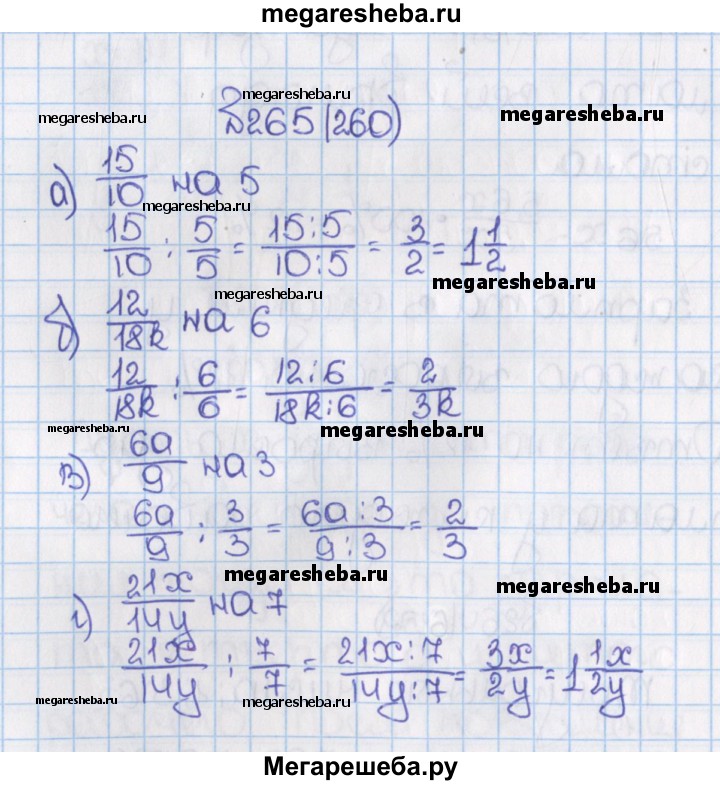 megaresheba.ru
megaresheba.ru
megaresheba.ru
№265(260)
megaresheba.ru
а) 15/10 на 5
megaresheba.ru
15/10 : 5/5 = 15:5/10:5 = 3/2 = 1 1/2
megaresheba.ru
megaresheba.ru
б) 12/18k на 6
12/18k : 6/6 = 12:6/18k:6 = 2/3k
megaresheba.ru
megaresheba.ru
в) 6a/9 на 3
6a/9 : 3/3 = 6a:3/9:3 = 2/3
megaresheba.ru
megaresheba.ru
г) 21x/14y на 7
21x/14y : 7/7 = 21x:7/14y:7 = 3x/2y = 1 1x/2y
megaresheba.ru
megaresheba.ru
Мегарешеба.ру